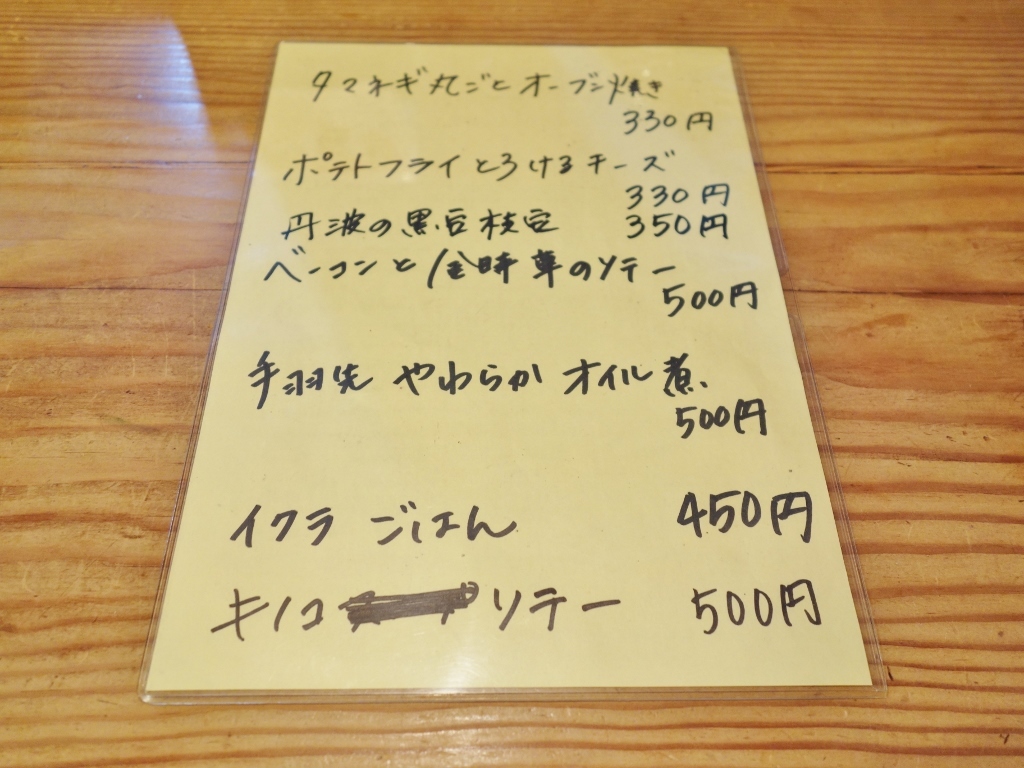 タマネギ丸ごとオーブン焼き
330円
ポテトフライとろけるチーズ
330円
丹波の黒豆枝豆 350円
ベーコンと金時草のソテー
500円
手羽先 やわらか オイル煮
500円
イクラ ごはん 450円
キノコ ソテー 500円